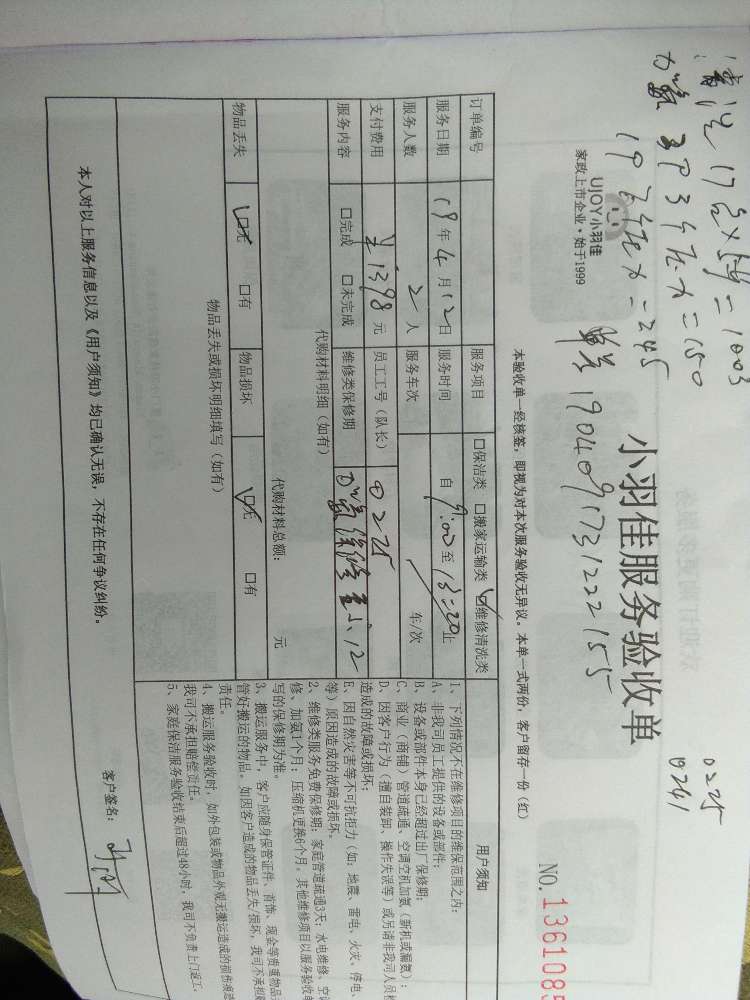 清洗 17台×59=1003
加氨 3P 3台 × =150
1P 7台 × =245
单号 190409731222155
0225
0241
UJOY小羽佳
家政上市企业·始于1999
小羽佳服务验收单
NO.1361085
本验收单一经核签，即视为对本次服务验收无异议。本单一式两份，客户留存一份（红）
订单编号 服务项目 □保洁类 □搬家运输类 ☑维修清洗类
服务日期 19年4月12日 服务时间 自 9:00 至 18:20 止
服务人数 2 人 服务车次 车/次
支付费用 ¥1398 元 员工工号（队长） 0225
服务内容 □完成 □未完成 维修类保修期
代购材料明细（如有）
代购材料总额： 元
物品丢失 ☑无 □有 物品损坏 ☑无 □有
物品丢失或损坏明细填写（如有）
用户须知
1、下列情况不在维修项目的维保范围之内：
A、非我司员工提供的设备或部件；
B、设备或部件本身已经超过出厂保修期；
C、商业（商铺）管道疏通、空调空机加氨（新机或漏氨）；
D、因客户行为（擅自装卸、操作失误等）或另请非我司人员检
造成的故障或损坏；
E、因自然灾害等不可抗拒力（如：地震、雷电、火灾、停电、
等）原因造成的故障或损坏。
2、维修类服务免费保修期：家庭管道疏通3天；水电维修、空调
修、加氨1个月；压缩机更换6个月。其他维修项目以服务验收单
写的保修期为准。
3、搬运服务中，客户应随身保管证件、首饰、现金等贵重物品
管好搬运的物品。如因客户造成的物品丢失/损坏，我司不承担赔
责任。
4、搬运服务验收时，如外包装或物品外观无搬运造成的损伤痕迹
我司不承担赔偿责任。
5、家庭保洁服务验收结束后超过48小时，我司不负责上门返工。
本人对以上服务信息以及《用户须知》均已确认无误，不存在任何争议纠纷。
客户签名：